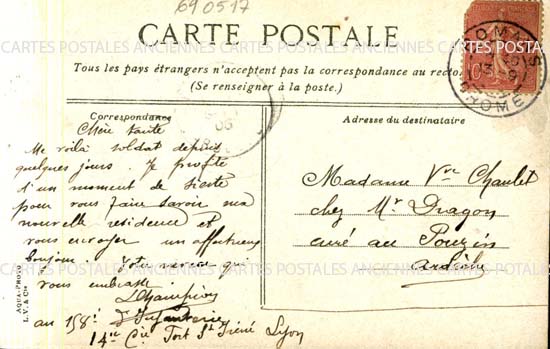 690517
CARTE POSTALE
Tous les pays étrangers n'acceptent pas la correspondance au recto
(Se renseigner à la poste.)
Correspondance
Chère tante
Me voilà soldat depuis
quelques jours. Je profite
d'un moment de sieste
pour vous faire savoir ma
nouvelle résidence et
vous envoyer un affectueux
bonjour. Votre neveu qui
vous embrasse.
L Champion
au 158e d'Infanterie
14me Cie Fort St Irénée Lyon
Adresse du destinataire
Madame Vve Chaulet
chez Mr Dragon
curé au Pouzin
Ardèche
AQUA-PHOTO
L. V. & Cie
CARTES POSTALES ANCIENNES CARTES POSTALES ANCIENNES CARTES POSTALES